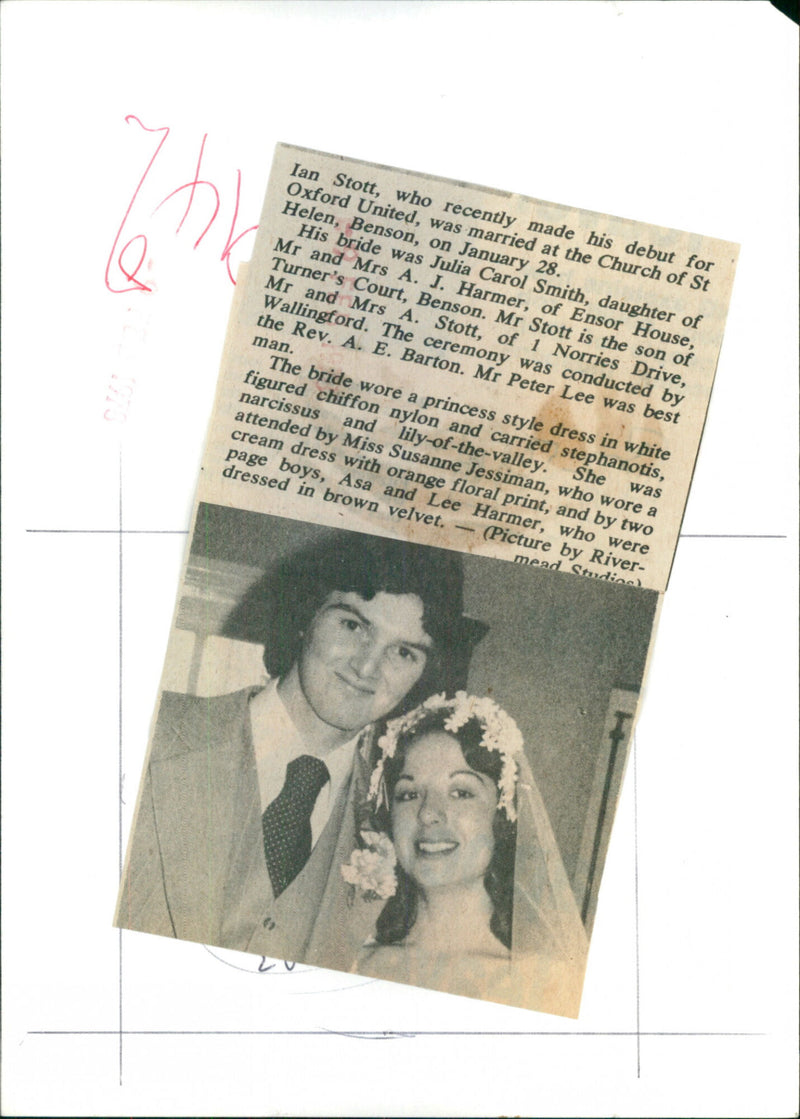 Ian Stott, who recently made his debut for
Oxford United, was married at the Church of St
Helen, Benson, on January 28.
His bride was Julia Carol Smith, daughter of
Mr and Mrs A. J. Harmer, of Ensor House,
Turner's Court, Benson. Mr Stott is the son of
Mr and Mrs A. Stott, of 1 Norries Drive,
Wallingford. The ceremony was conducted by
the Rev. A. E. Barton. Mr Peter Lee was best
man.
The bride wore a princess style dress in white
figured chiffon nylon and carried stephanotis,
narcissus and lily-of-the-valley. She was
attended by Miss Susanne Jessiman, who wore a
cream dress with orange floral print, and by two
page boys, Asa and Lee Harmer, who were
dressed in brown velvet. — (Picture by River-
mead Studios)